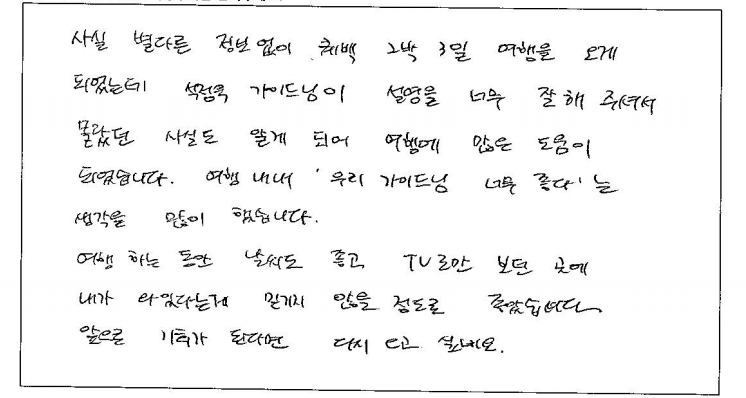 사실 별다른 정보 없이 태백 2박 3일 여행을 오게
되었는데 가이드님이 설명을 너무 잘 해 주셔서
몰랐던 사실도 알게 되어 여행에 많은 도움이
되었습니다. 여행 내내 '우리 가이드님 너무 좋다' 는
생각을 많이 했습니다.
여행 하는 동안 날씨도 좋고 TV로만 보던 곳에
내가 와 있다는게 믿기지 않을 정도로 좋았습니다
앞으로 기회가 된다면 다시 오고 싶네요.